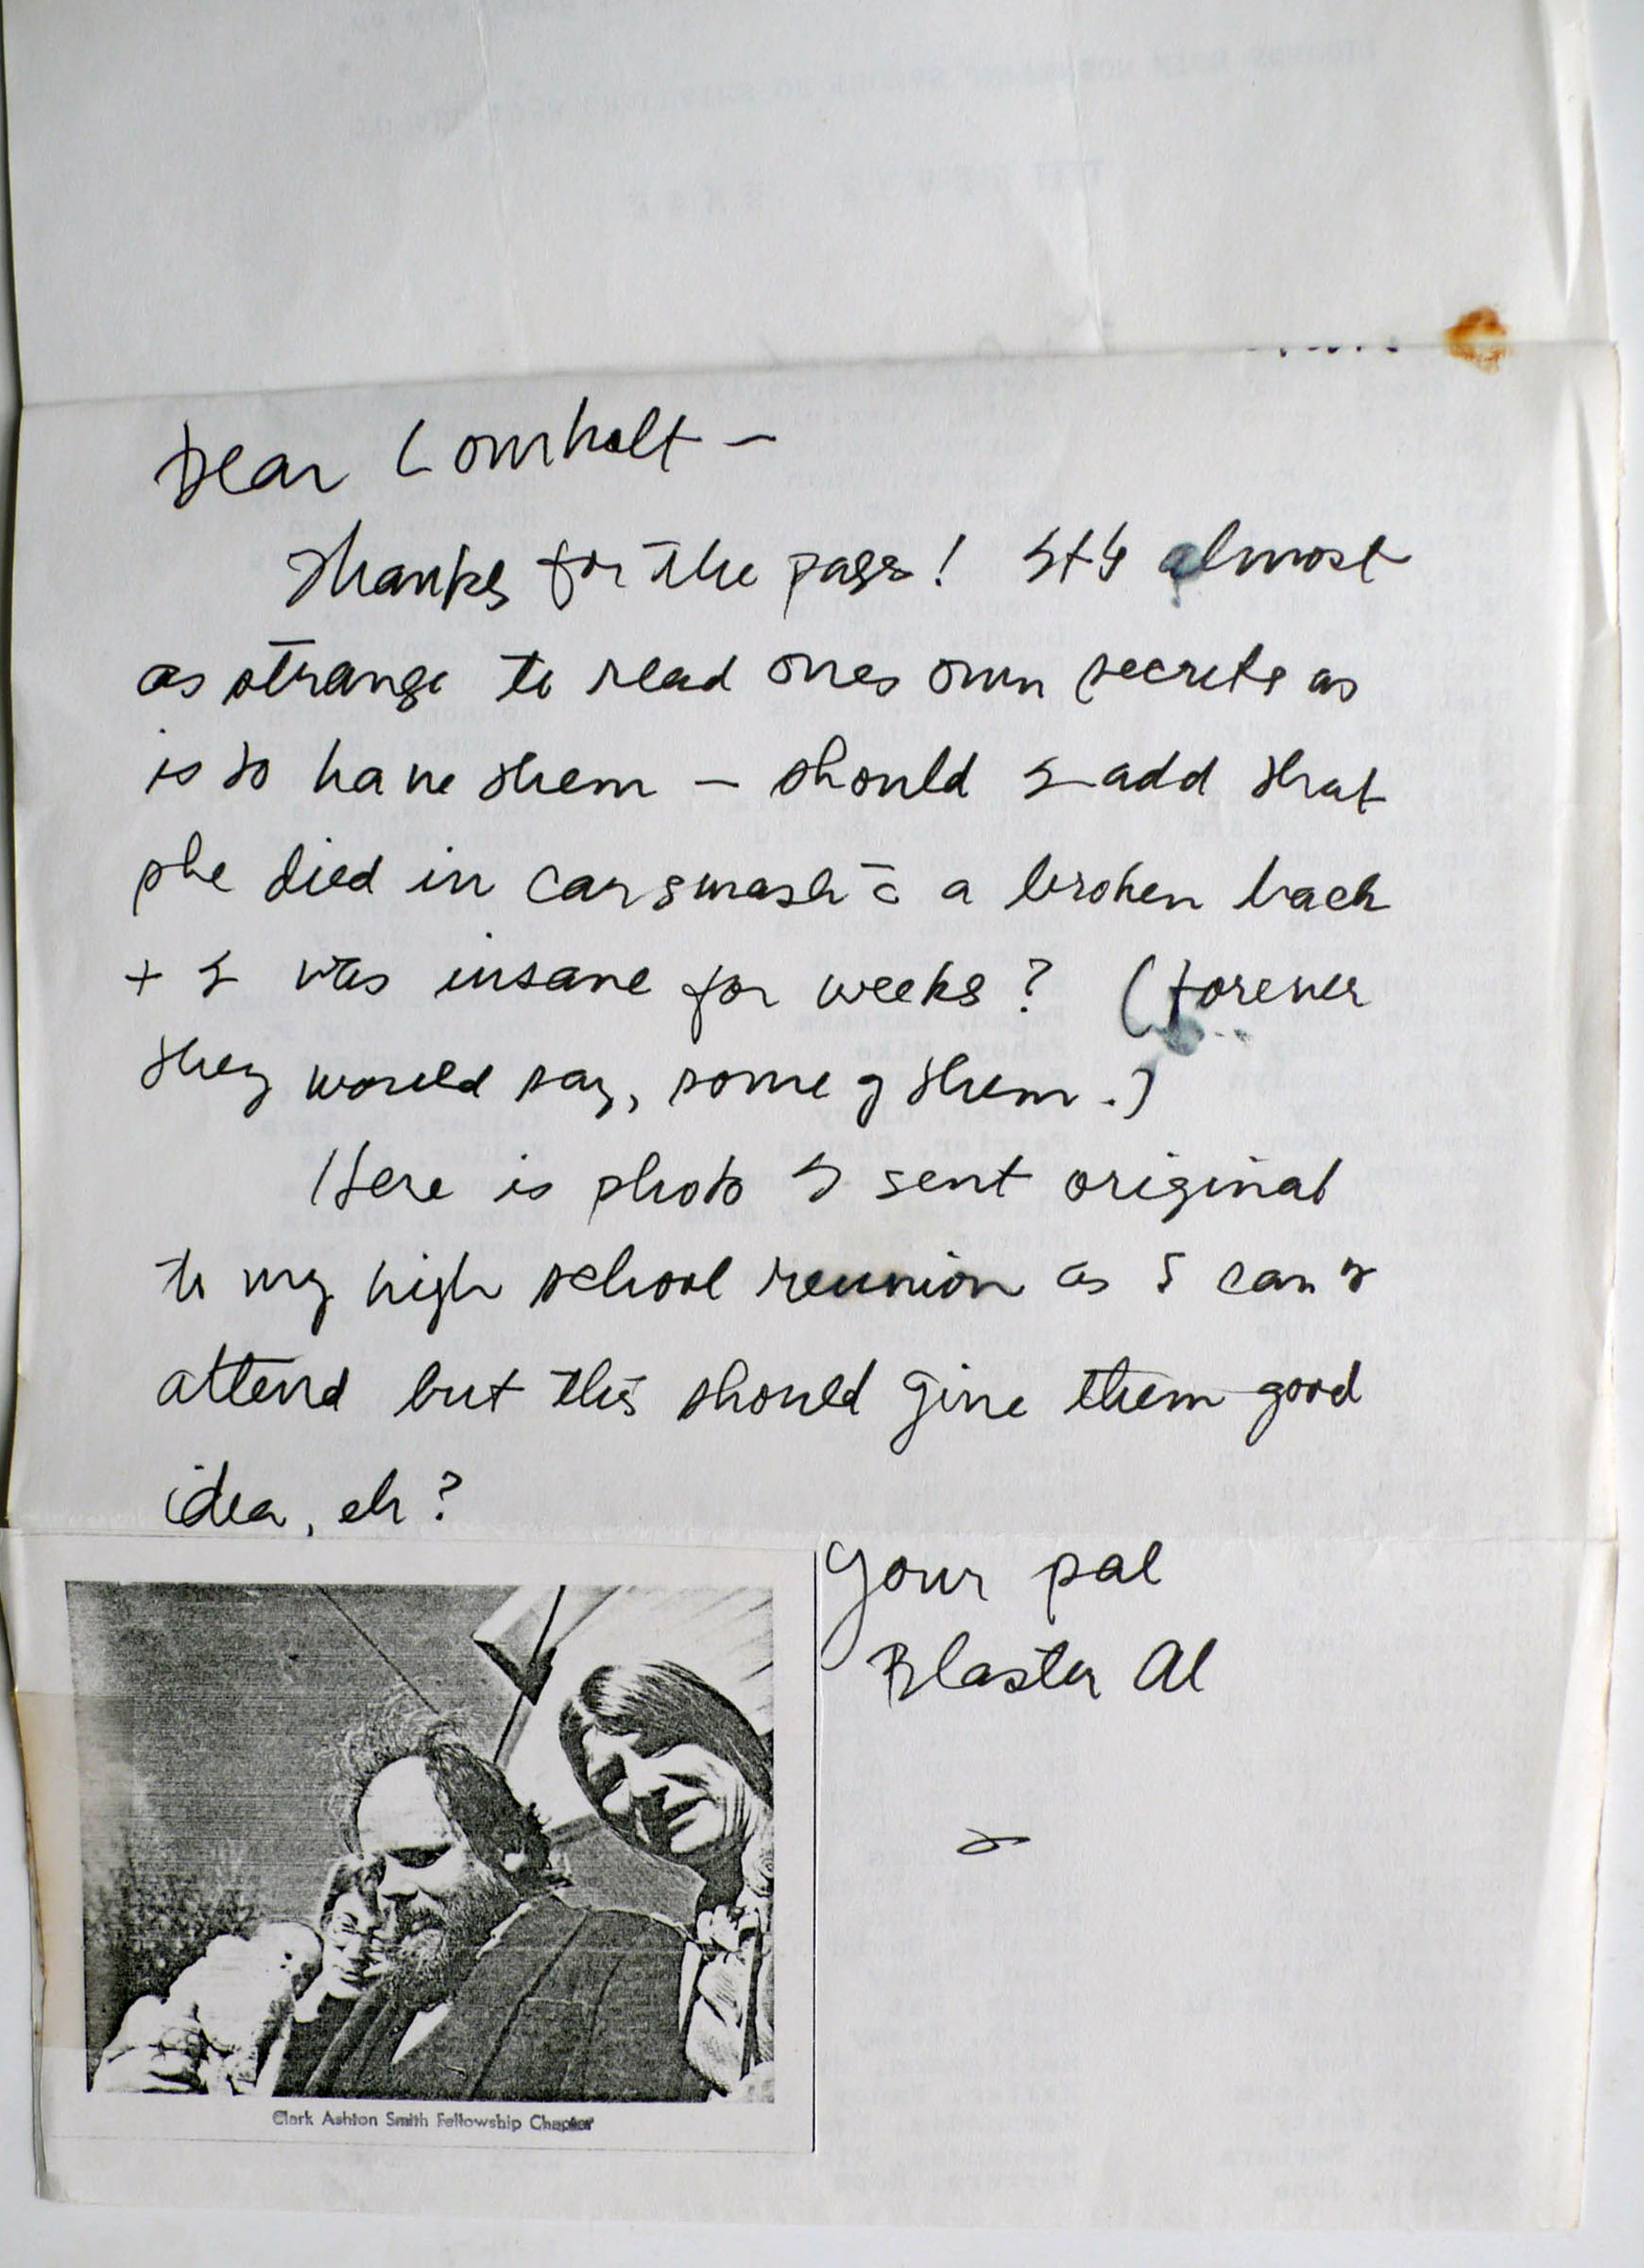 Dear Lomholt —
Thanks for the page! It's almost
as strange to read ones own secrets as
is to have them — should I add that
she died in car smash c̄ a broken back
+ I was insane for weeks? (Forever
they would say, some of them.)
Here is photo I sent original
to my high school reunion as I can't
attend but this should give them good
idea, eh?
Your pal
Blaster Al
Clark Ashton Smith Fellowship Chapter